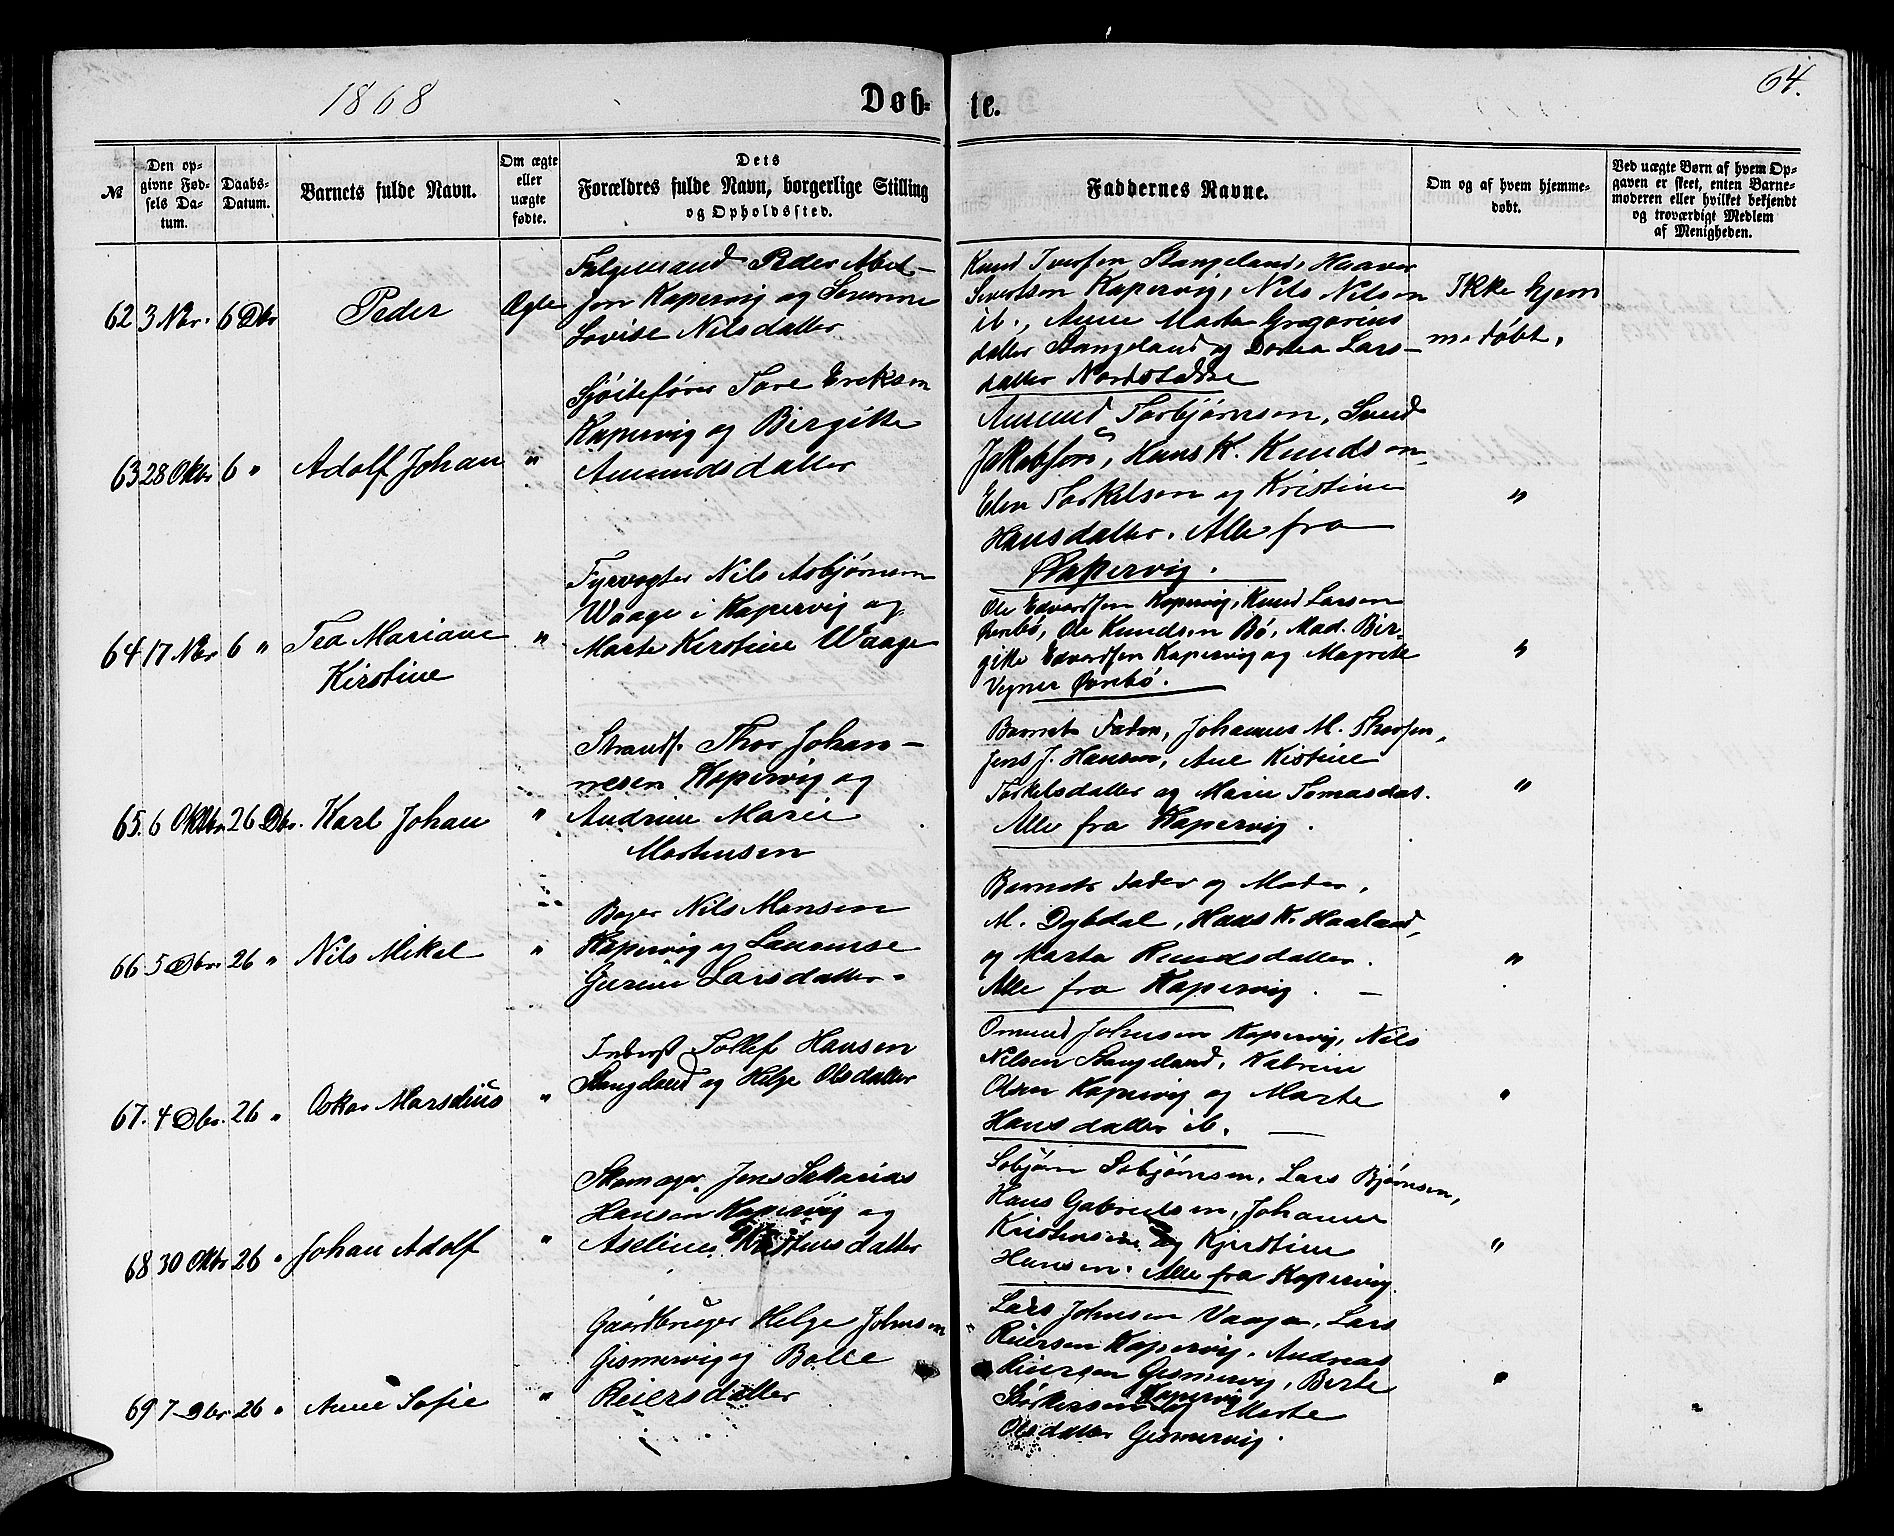 1868
Døb-
te.
64.
№
Den op-
givne Fød-
sels Da-
tum.
Daabs-
Datum.
Barnets fulde Navn.
Om ægte
eller
uægte
fødte.
Dets
Forældres fulde Navn, borgerlige Stilling
og Opholdssted.
Faddernes Navne.
Om og af hvem hjemme-
døbt.
Ved uægte Børn af hvem Op-
gaven er skeet, enten Barne-
moderen eller hvilket bekjendt
og troværdigt Medlem
af Menigheden.
62 3 Nbr. 6 Dbr
Peder
Ægte
Peder
sen Kopervig og Severine
Lovise Nilsdatter
Knud Iversen Stangeland, Haaver
Sivertsen Kopervig, Nils Nilsen
ib., Anne Marta Gregorius
datter Stangeland og Dorea Lars-
datter Nordstokke
Ikke hjem
medøbt.
63 28 Oktbr 6 "
Adolf Johan
"
Tore Eriksen
Kopervig og Birgitte
Amundsdatter
Amund Torbjørnsen, Svend
Jakobsen, Hans K. Knudsen,
Elen Torkelsen og Kristine
Hansdatter. Alle fra
Kopervig.
"
64 17 Nbr 6 "
Tea Mariane
Kirstine
"
Fyrvogter Nils Asbjørnsen
Waage i Kopervig og
Marte Kirstine Waage
Ole Edvardsen Kopervig, Knud Larsen
Østrebø, Ole Knudsen Bø, Mad. Bir-
gitte Edvardsen Kopervig og Magrete
Østrebø.
"
65. 6 Oktbr. 26 Dbr.
Karl Johan
"
Strands. Thor Johan-
nesen Kopervig og
Andrine Marie
Mortensen
Barnets Fader, Johannes M. Thorsen,
Jens J. Hansen, Ane Kistine
Torkelsdatter og Marie Tomasdat.
Alle fra Kopervig.
"
66 5 Dbr. 26 "
Nils Mikal
"
Bager Nils Monsen
Kopervig og Laurense
Gurine Larsdatter.
Barnets Fader og Moder,
M. Dybdal, Hans K. Haaland,
og Marta Knudsdatter.
Alle fra Kopervig. —
"
67. 4 Dbr. 26 "
Oskar Marselius
"
Inderst Tollef Hansen
Stangeland og Helge Olsdatter
Omund Johnsen Kopervig, Nils
Nilsen Stangeland, Katrine
Olsen Kopervig og Marte
Hansdatter ib. —
"
68 30 Oktbr 26 "
Johan Adolf
"
Skomager Jens Sakarias
Hansen Kopervig og
Aseline
Sobjørn Sobjørnsen, Lars Bjørnsen,
Hans Gabrielsen, Johanne
Kristensen og Kjerstine
Hansen. Alle fra Kopervig.
"
69 7 Dbr 26 "
Anne Sofie
"
Gaardbruger Helge Johnsen
Gismervig og Bolle
Reiersdatter
Lars Johnsen Vaage, Lars
Reiersen Kopervig, Andreas
Reiersen Gismervig, Berte
Kopervig
og Marte
Olsdatter Gismervig.
"